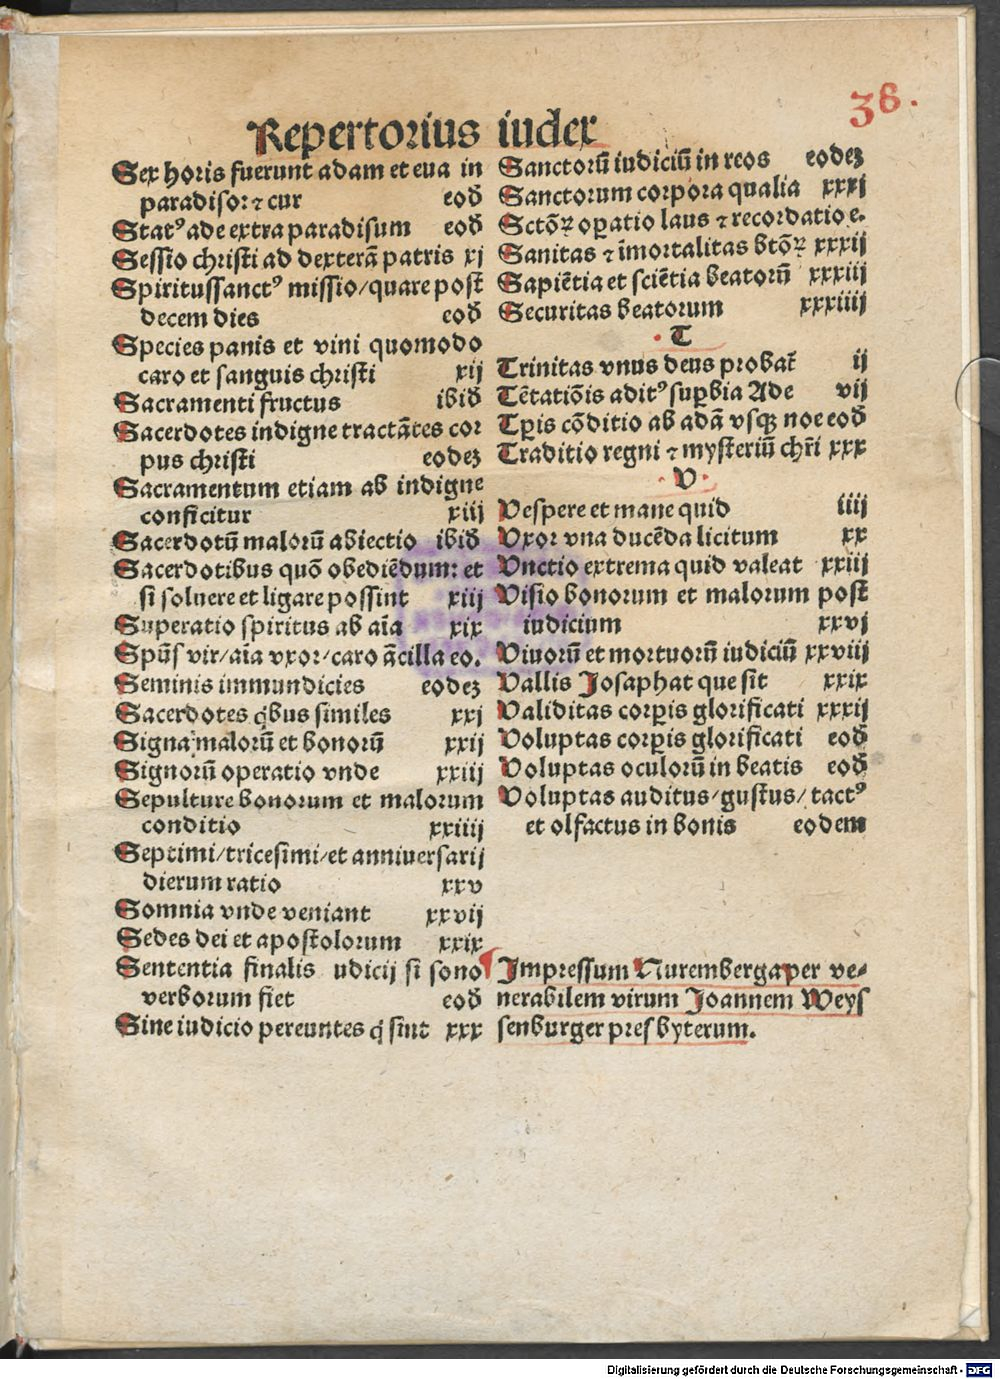 38.
Repertorius iudex
Sex horis fuerunt adam et eua in
paradiso: ⁊ cur eođ
Statꝰ ade extra paradisum eođ
Sessio christi ad dexterā patris xj
Spiritussanctꝰ missio/quare post
decem dies eođ
Species panis et vini quomodo
caro et sanguis christi xij
Sacramenti fructus ibiđ
Sacerdotes indigne tractātes cor
pus christi eodeꝫ
Sacramentum etiam ab indigne
conficitur xiij
Sacerdotū malorū abiectio ibiđ
Sacerdotibus quō obediēdum: et
si soluere et ligare possint xiij
Superatio spiritus ab aīa xix
Spūs vir/aīa vxor/caro ācilla eo.
Seminis immundicies eodeꝫ
Sacerdotes qͥbus similes xxj
Signa malorū et bonorū xxij
Signorū operatio vnde xxiij
Sepulture bonorum et malorum
conditio xxiiij
Septimi/tricesimi/et anniuersarij
dierum ratio xxv
Somnia vnde veniant xxvij
Sedes dei et apostolorum xxix
Sententia finalis udicij si sono
verborum fiet eođ
Sine iudicio pereuntes qͥ sint xxx
Sanctorū iudiciū in reos eodeꝫ
Sanctorum corpora qualia xxxj
Sctōꝝ oꝑatio laus ⁊ recordatio e.
Sanitas ⁊ īmortalitas btōꝝ xxxij
Sapiētia et sciētia beatorū xxxiij
Securitas beatorum xxxiiij
T
Trinitas vnus deus probat̄ ij
Tētatiōis aditꝰ suꝑbia Ade vij
Tꝑis cōditio ab adā vsqꝫ noe eođ
Traditio regni ⁊ mysteriū chr̄i xxx
V
Vespere et mane quid iiij
Vxor vna ducēda licitum xx
Vnctio extrema quid valeat xxiij
Visio bonorum et malorum post
iudicium xxvj
Viuorū et mortuorū iudiciū xxviij
Vallis Josaphat que sit xxix
Validitas corꝑis glorificati xxxij
Voluptas corꝑis glorificati eođ
Voluptas oculorū in beatis eođ
Voluptas auditus/gustus/tactꝰ
et olfactus in bonis eodem
Impressum Nuremberga per ve⸗
nerabilem virum Joannem Weys
senburger presbyterum.
Digitalisierung gefördert durch die Deutsche Forschungsgemeinschaft - DFG